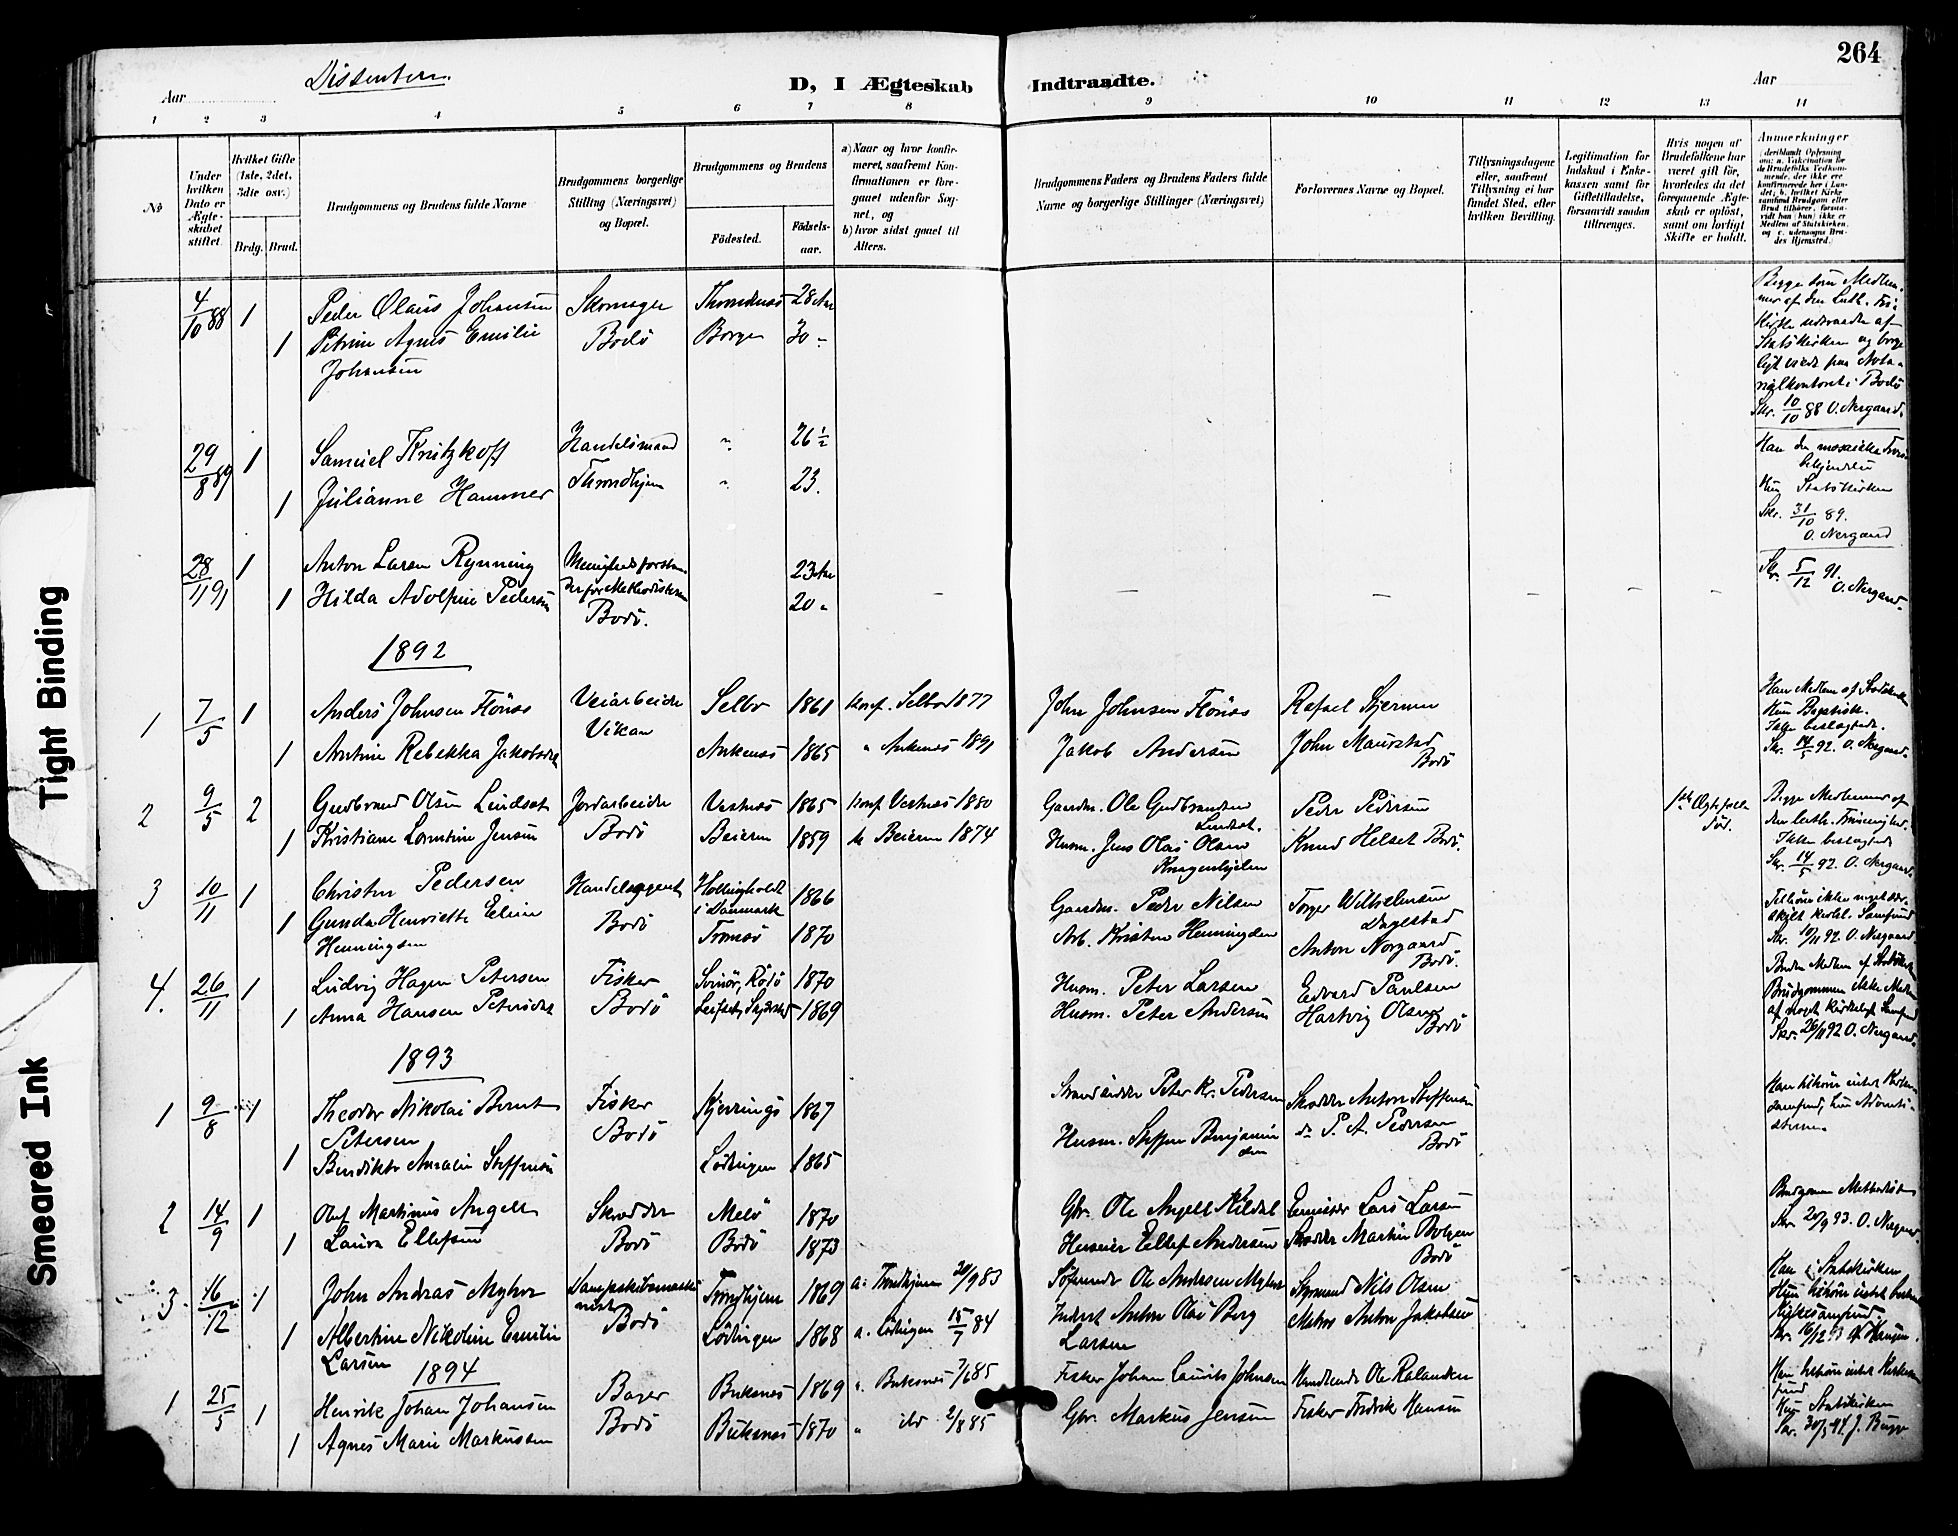 264
Dissentere.
D, I Ægteskab Indtraadte.
Aar
Aar
1 2 3 4 5 6 7 8 9 10 11 12 13 14
No
Under hvilken Dato er Ægteskabet stiftet.
Hvilket Gifte (1ste, 2det, 3die osv.)
Brdg. Brud.
Brudgommens og Brudens fulde Navne
Brudgommens borgerlige Stilling (Næringsvei) og Bopæl.
Brudgommens og Brudens
Fødested.
Fødselsaar.
a) Naar og hvor konfirmeret, saafremt Konfirmationen er foregaaet udenfor Sognet, og
b) hvor sidst gaaet til Alters.
Brudgommens Faders og Brudens Faders fulde Navne og borgerlige Stillinger (Næringsvei)
Forlovernes Navne og Bopæl.
Tillysningsdagene eller, saafremt Tillysning ei har fundet Sted, efter hvilken Bevilling.
Legitimation for Indskud i Enkekassen samt for Giftetilladelse, forsaavidt saadan tiltrænges.
Hvis nogen af Brudefolkene har været gift før, hvorledes da det foregaaende Ægteskab er opløst, samt om lovligt Skifte er holdt.
Anmerkninger
4/10 88 1 Peder Olaus Johansen Skomager Throndenæs 28 Aar
1 Petrine Agnes Emilie Bodö Borge 30 "
Johansen
Begge som Medlemmer af den Luth. Frikirke udtraadte af Statskirken og borgeligt viede paa Notarialkontoret i Bodö
Skr. 10/10 88 O. Nergaard.
29/8 89 1 Samuel Knitzkoff Handelsmand " 26 1/2
1 Julianne Hammer Throndhjem " 23.
Han den mosaiske Troesbekjendelse
Hun Statskirken
Skr. 31/10 89.
O. Nergaard
28/11 91 1 Anton Larsen Rynning Menighedsforstander for Methodisterne 23 Aar
1 Hilda Adolfine Pedersen Bodö. 20 "
Skr. 5/12 91.
O. Nergaard.
1892
1 7/5 1 Anders Johnsen Flönæs Veiarbeider Selbo 1861 Konf. Selbo 1877 John Johnsen Flönæs Rafael Stjernen
Vikan
1 Antine Rebekka Jakobsdtr Ankenæs 1865 " Ankenæs 1891 Jakob Andersen John Maurstad
Bodö
Han Medlem af Statskirken
Hun Baptist.
Ikke beslægtede.
Skr. 14/5 92. O. Nergaard.
2 9/5 2 Gudbrand Olsen Lindset Jordarbeider Vestnæs 1865 Konf Vestnæs 1880 Gaardm. Ole Gudbrandsen Lindset. Peder Pedersen
1 Kristiane Lorentine Jensen Bodö Beieren 1859 k Beieren 1874 Husm. Jens Olai Olsen Knud Helset Bodö.
1ste Ægtefælle död.
Begge Medlemmer af den luth. Frimenighed.
Ikke beslægtede
Skr. 14/5 92. O. Nergaard.
3 10/11 1 Christen Pedersen Handelsagent i Danmark 1866 Gaardm. Peder Nilsen Torger Wilhelmsen
1 Gunda Henriette Eline Bodö Tromsö 1870 Arb. Kristen Henningsen Dagestad
Henningsen Anton Norgaard
Bodö.
Skr. 10/11 92. O. Nergaard.
4. 26/11 1 Ludvig Hagen Petersen Fisker Svinör, Rödö 1870 Husm. Peter Larsen Edvard Paulsen
1 Anna Hansen Petersdtr Bodö 1869 Husm. Peter Andersen Hartvig Olsen
Bodö
Bruden Medlem af Statskirken
Brudgommen ikke Medlem af noget kirkeligt Samfund
Skr. 26/11 92 O. Nergaard.
1893
1 9/8 1 Theodor Nikolai Bernt Fisker Kjerringö 1867 Strandsidder Peter Kr. Pedersen Skrædder Anton Steffensen
Petersen Bodö
1 Benedikte Amalie Steffensen Lödingen 1865 Husm. Steffen Benjaminsen do P. A. Pedersen
Bodö
Han tilhörer intet Kirkesamfund, hun Adventisterne
2 14/9 1 Olaf Martinus Angell Skrædder Melö 1870 Gbr. Ole Angell Kildal Lars Larsen
1 Laura Ellefsen Bodö Bodö 1873 Ellef Andersen Skrædder Martin Bolgen
Bodö
Brudgommen Methodist
Skr. 20/9 93. O. Nergaard.
3. 16/12 1 John Andreas Myhre Bodö Trondhjem 1869 a. Trondhjem 30/9 83 Ole Andersen Myhre Styrmand Nils Olsen
1 Albertine Nikoline Emilie Lödingen 1868 a. Lödingen 15/7 84 Inderst Anton Olai Berg Matros Anton Jakobsen
Larsen Larsen
Han i Statskirken
Hun tilhörer intet bestemt Religionssamfund.
Skr. 16/12 93 Hansen.
1894
1 25/5 1 Henrik Johan Johansen Bager Buksnæs 1869 a. Buksnæs 7/6 85 Fisker Johan Laurits Johnsen Handlende Ole Rolandsen
1 Agnes Marie Markussen Bodö Buksnæs 1870 " ibd 2/8 85 Gbr. Markus Jensen Fisker Fredrik Hansen
Han tilhörer intet Kirkesamfund
Hun Statskirken
Skr. 30/5 94. J. Bugge
Tight Binding
Smeared Ink